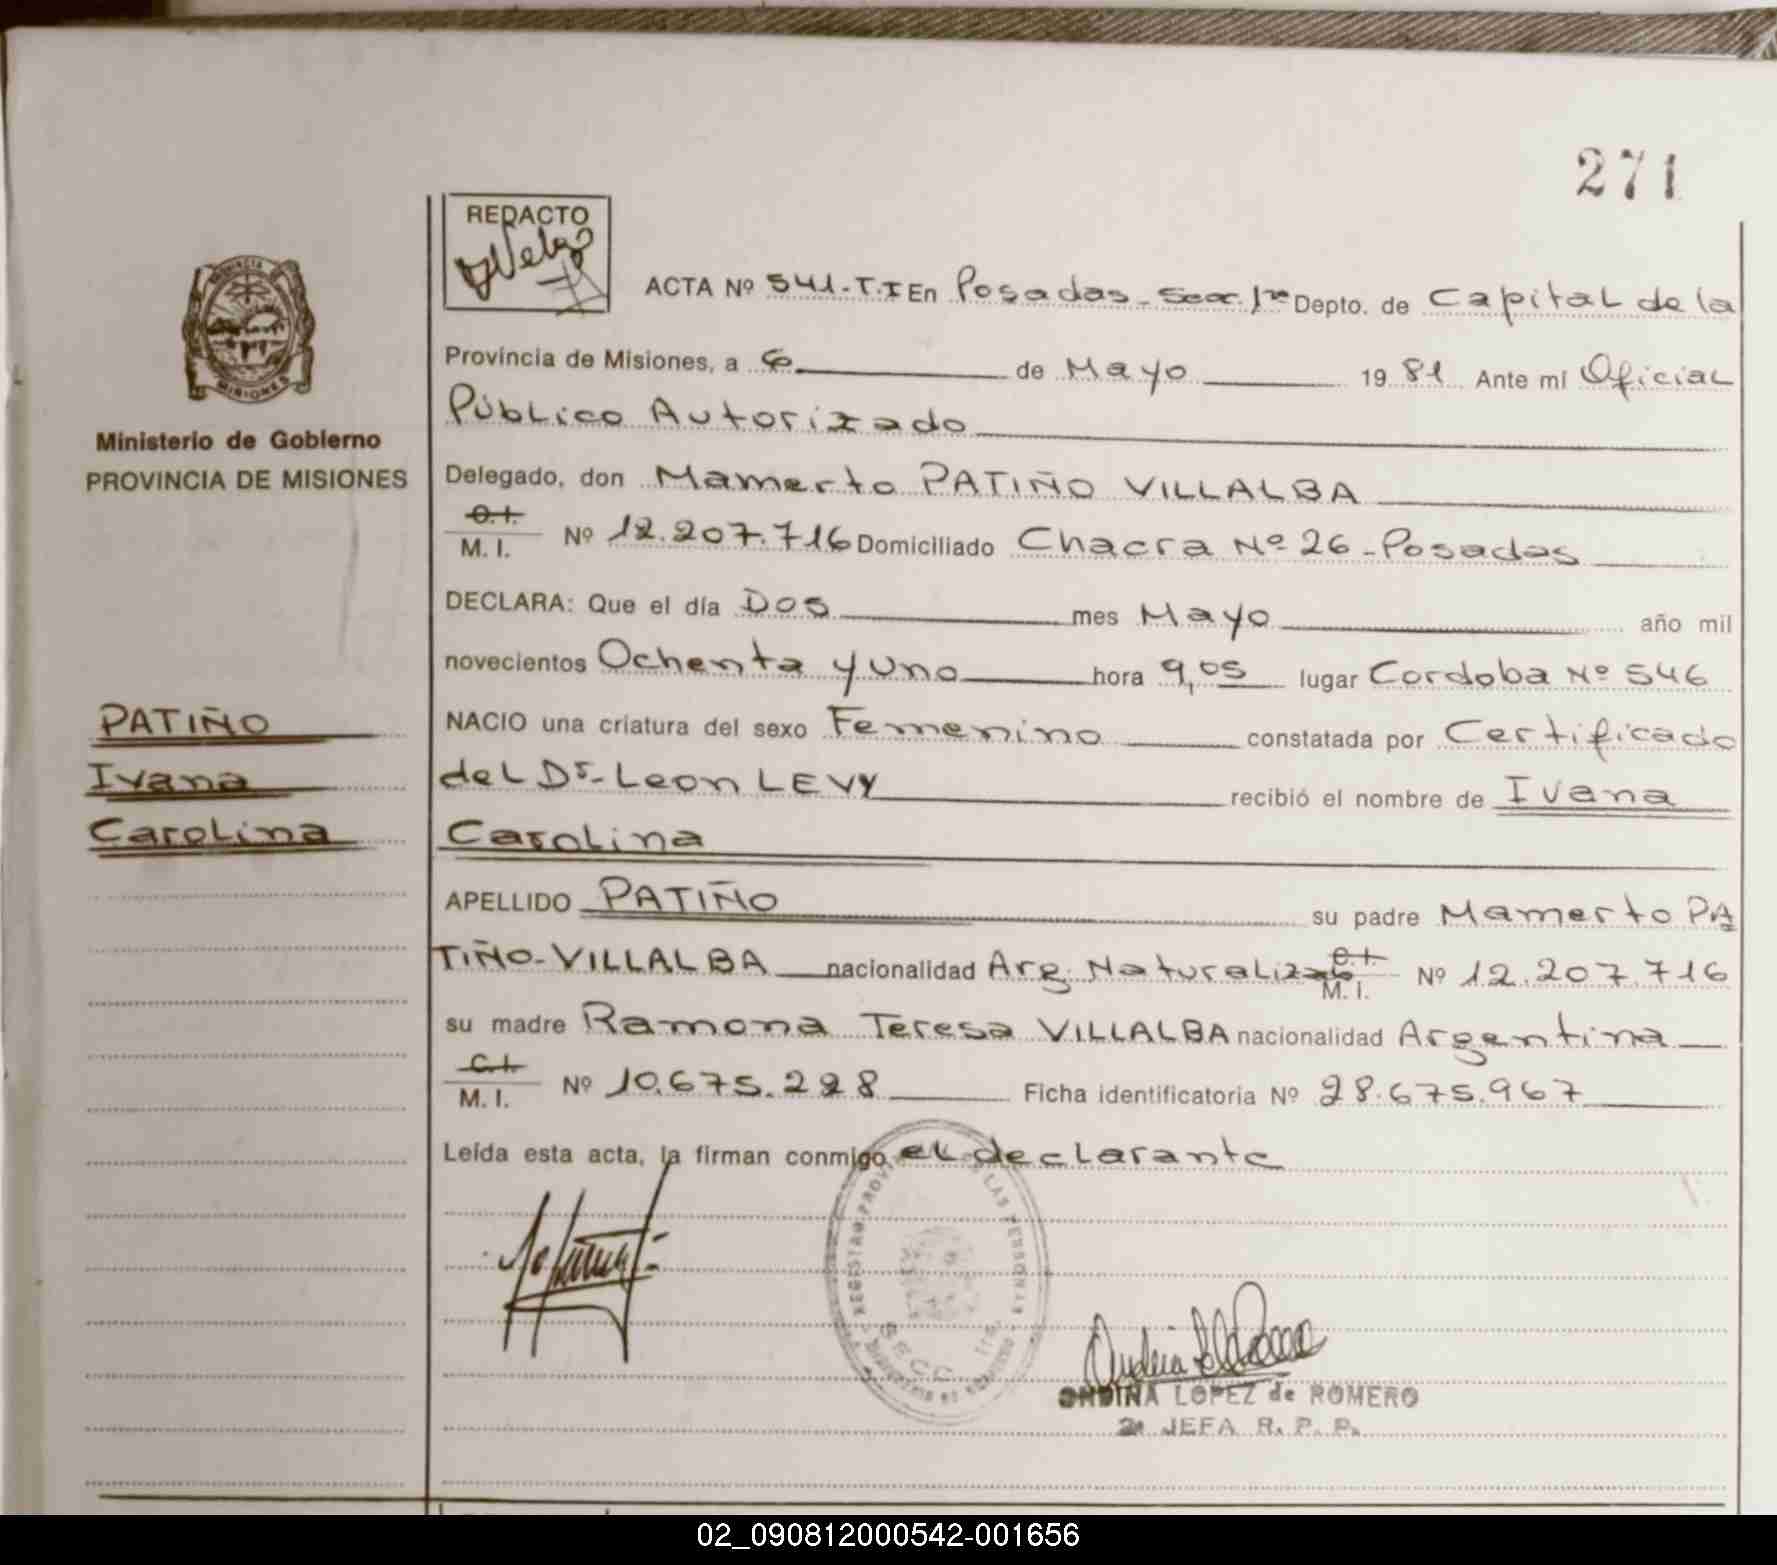 271
REDACTO
ACTA Nº 541-T.I En Posadas-Secc. 1ra Depto. de Capital de la
Provincia de Misiones, a 6 de Mayo 1981 Ante mi Oficial
Público Autorizado
Ministerio de Gobierno
PROVINCIA DE MISIONES
Delegado, don Mamerto PATIÑO VILLALBA
C.I.
M. I. Nº 12.207.716 Domiciliado Chacra Nº 26-Posadas
DECLARA: Que el día Dos mes Mayo año mil
novecientos Ochenta y uno hora 9,05 lugar Cordoba Nº 546
PATIÑO
Ivana
Carolina
NACIO una criatura del sexo Femenino constatada por Certificado
del Dr-Leon LEVY recibió el nombre de Ivana
Carolina
APELLIDO PATIÑO su padre Mamerto PA
TIÑO-VILLALBA nacionalidad Arg. Naturalizado C.I. M. I. Nº 12.207.716
su madre Ramona Teresa VILLALBA nacionalidad Argentina
C.I.
M. I. Nº 10.675.228 Ficha identificatoria Nº 28.675.967
Leída esta acta, la firman conmigo el declarante
ONDINA LOPEZ de ROMERO
JEFA R. P. P.
02_090812000542-001656